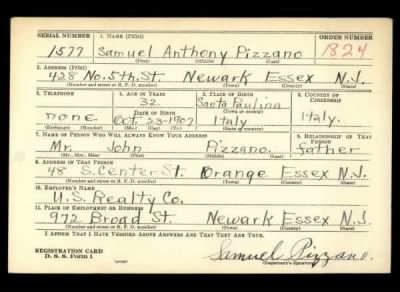 SERIAL NUMBER 1. NAME (Print) ORDER NUMBER
1577 Samuel Anthony Pizzano 1824
(First) (Middle) (Last)
2. ADDRESS (Print)
428 No. 5th. St. Newark Essex N.J.
(Number and street or R. F. D. number) (Town) (County) (State)
3. TELEPHONE 4. AGE IN YEARS 5. PLACE OF BIRTH 6. COUNTRY OF CITIZENSHIP
32 Santa Paulina
DATE OF BIRTH (Town or county)
none Oct. 23-1907 Italy Italy.
(Exchange) (Number) (Mo.) (Day) (Yr.) (State or country)
7. NAME OF PERSON WHO WILL ALWAYS KNOW YOUR ADDRESS 8. RELATIONSHIP OF THAT PERSON
Mr. John Pizzano. father
(Mr., Mrs., Miss) (First) (Middle) (Last)
9. ADDRESS OF THAT PERSON
48 S. Center St. Orange Essex N.J.
(Number and street or R. F. D. number) (Town) (County) (State)
10. EMPLOYER'S NAME
U.S. Realty Co.
11. PLACE OF EMPLOYMENT OR BUSINESS
972 Broad St. Newark Essex N.J.
(Number and street or R. F. D. number) (Town) (County) (State)
I AFFIRM THAT I HAVE VERIFIED ABOVE ANSWERS AND THAT THEY ARE TRUE.
REGISTRATION CARD
D. S. S. Form 1 (over) Samuel Pizzano.
(Registrant's signature)